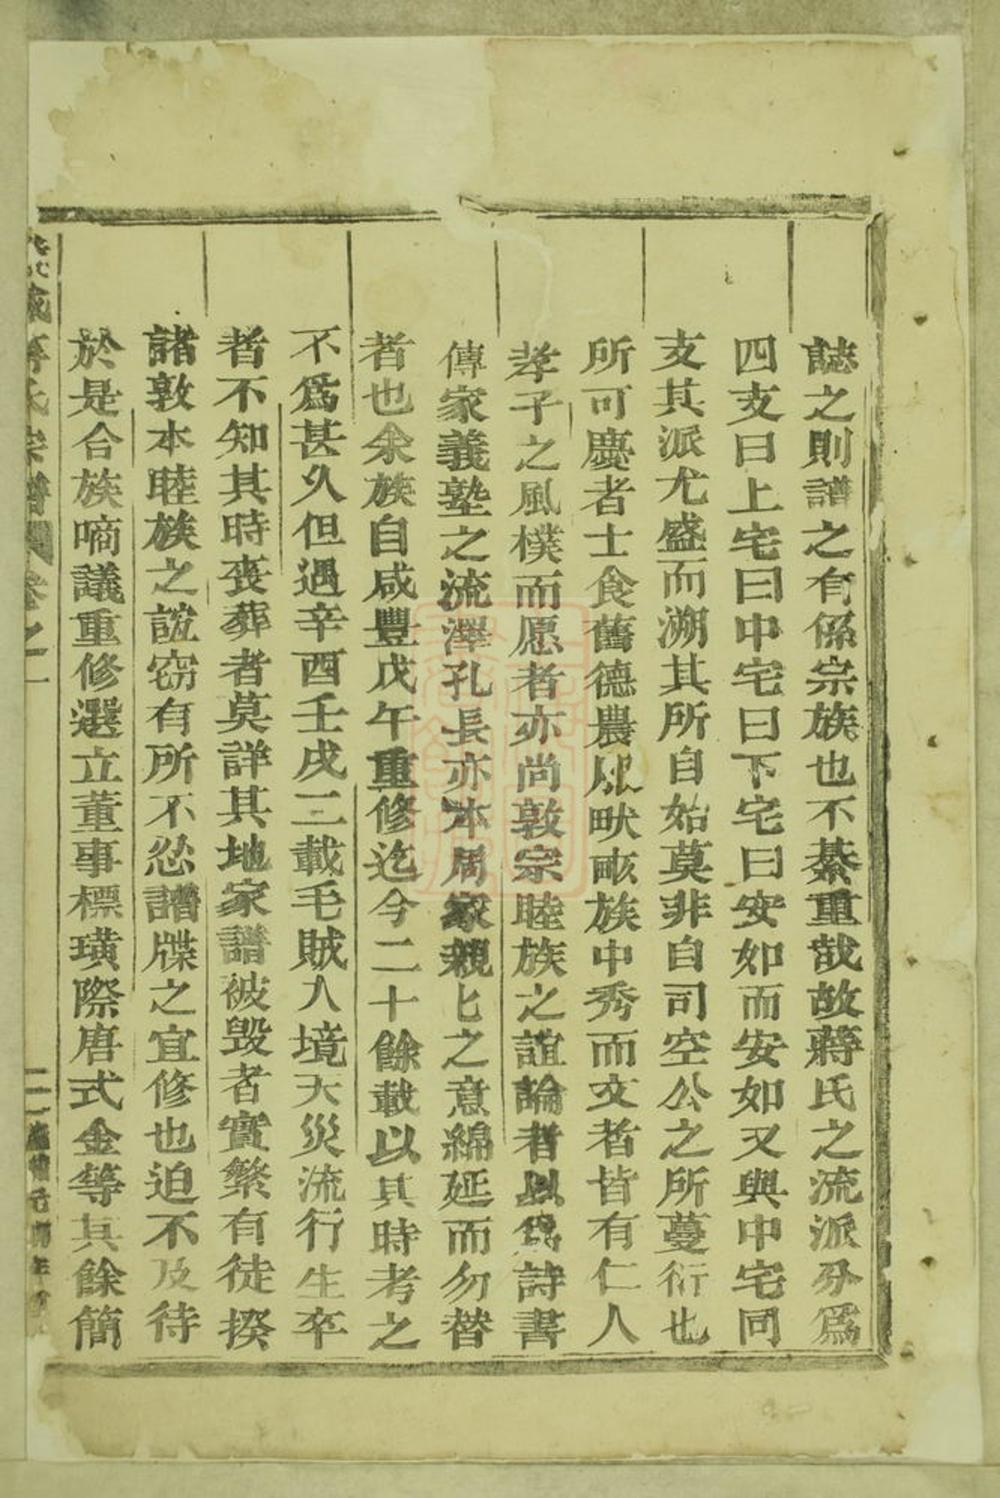 誌之則譜之有係宗族也不綦重哉故蔣氏之流派分爲
四支曰上宅曰中宅曰下宅曰安如而安如又與中宅同
支其派尤盛而溯其所自始莫非自司空公之所蔓衍也
所可慶者士食舊德農服畎畝族中秀而文者皆有仁人
孝子之風樸而愿者亦尚敦宗睦族之誼論者以爲詩書
傳家義塾之流澤孔長亦本周家親匕之意綿延而勿替
者也余族自咸豐戊午重修迄今二十餘載以其時考之
不爲甚久但遇辛酉壬戌二載毛賊入境天災流行生卒
者不知其時喪葬者莫詳其地家譜被毀者實繁有徒揆
諸敦本睦族之誼窃有所不忍譜牒之宜修也迫不及待
於是合族啇議重修選立董事標璜際唐式金等其餘簡
氏宗譜 卷之一